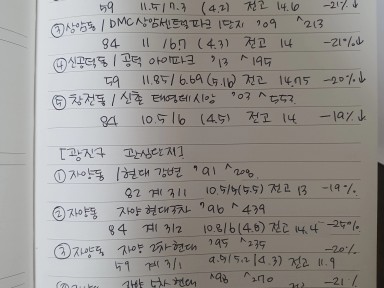 59 11.5/7.3 (4.2) 전고 14.6 -21%↓
③ 상암동 / DMC상암센트럴파크 1단지 '09 ^213
84 11/6.7 (4.3) 전고 14 -21%↓
④ 신공덕동 / 공덕 아이파크 '13 ^195
59 11.85/6.69 (5.16) 전고 14.75 -20%↓
⑤ 창전동 / 신촌 태영데시앙 '03 ^553
84 10.5/6 (4.5) 전고 14 -19%↓
[광진구 관심단지]
① 자양동 / 현대 강변 '91 ^208
82 계 3/1 10.5/5(5.5) 전고 13 -19%
② 자양동 자양현대3차 '96 ^439
84 계 3/2 10.8/6 (4.8) 전고 14.4 -25%
③ 자양동 자양 2차현대 '95 ^235
59 계 3/1 9.5/5.2 (4.3) 전고 11.9 -20%
자양 5차 현대 '98 ^270
-21%